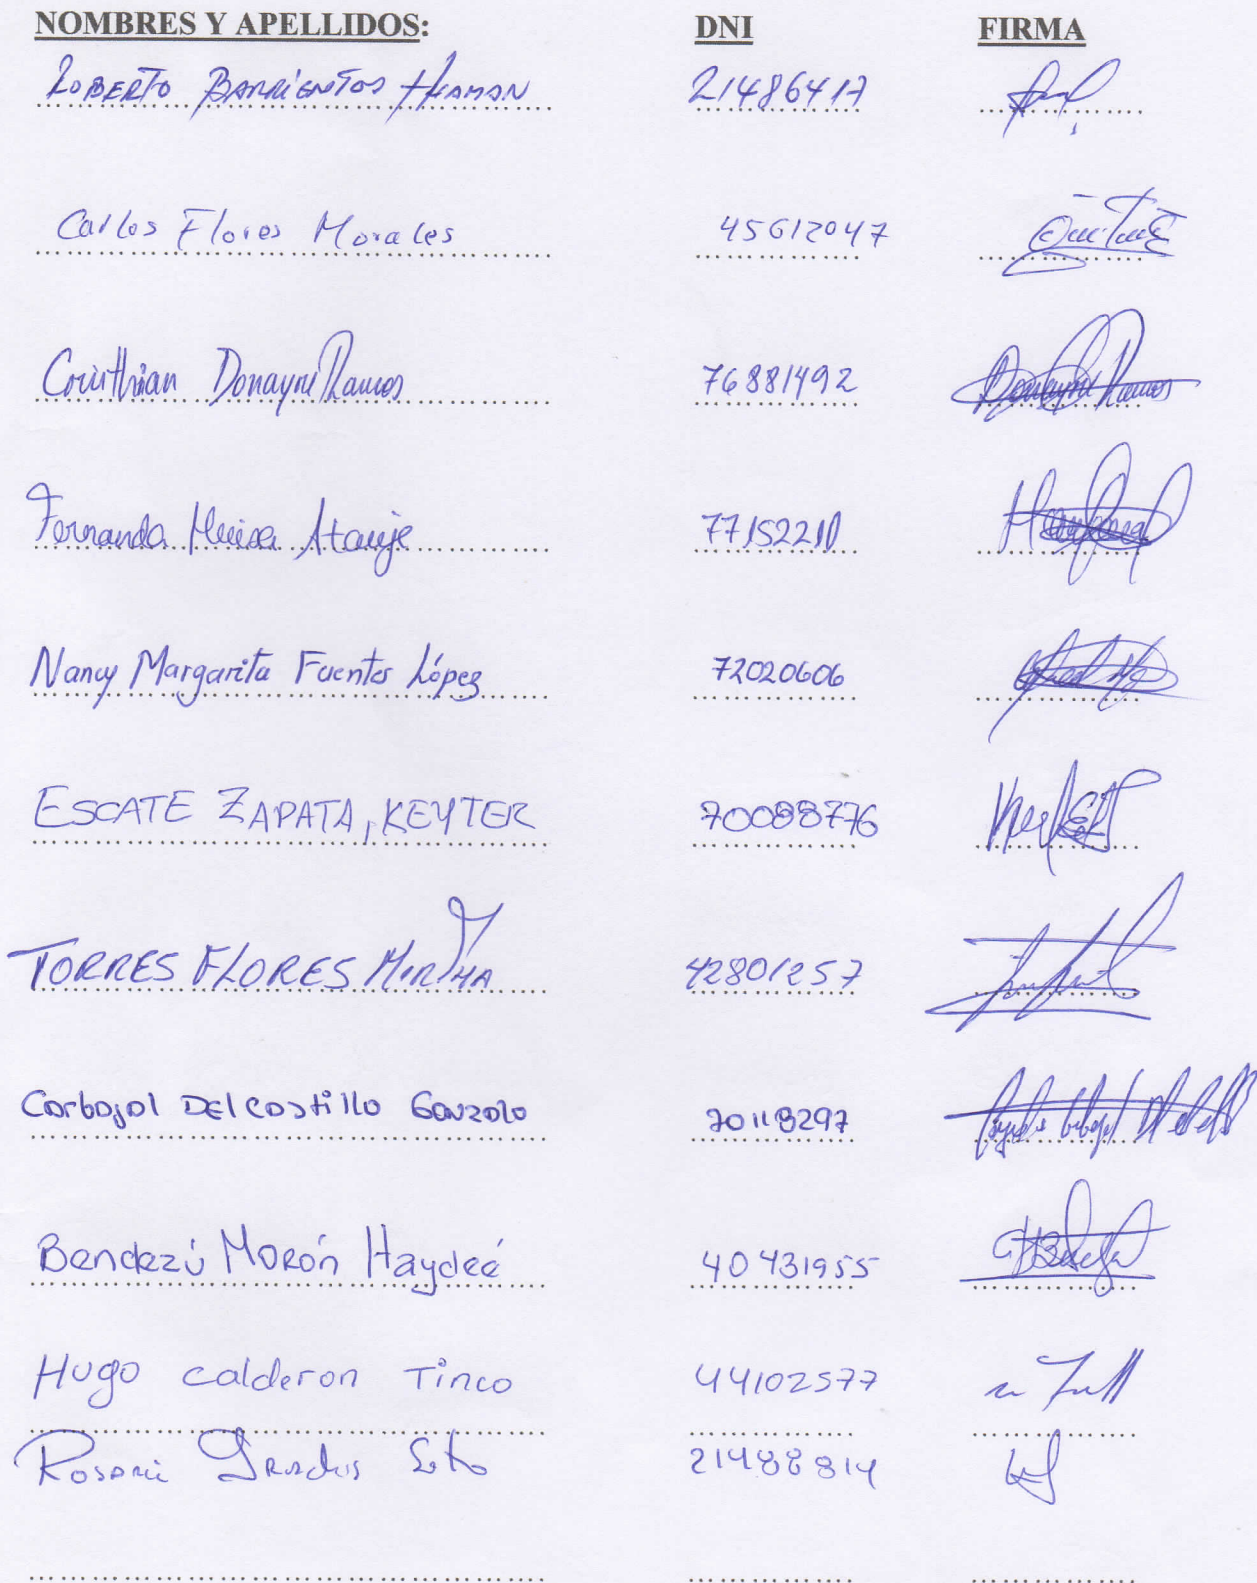 NOMBRES Y APELLIDOS: DNI FIRMA
ROBERTO BARRIENTOS HUAMAN 21486417
Carlos Flores Morales 45612047
Corinthian Donayre Ramos 76881492 Donayre Ramos
Fernanda Huisa Atauje
Nancy Margarita Fuentes López 72020606
ESCATE ZAPATA, KEYTER 70088776
TORRES FLORES MIRTHA 42801257
Carbajal Del Castillo Gonzalo 70118297
Bendezú Morón Haydeé 40431955
Hugo calderon Tinco 44102577
21488814